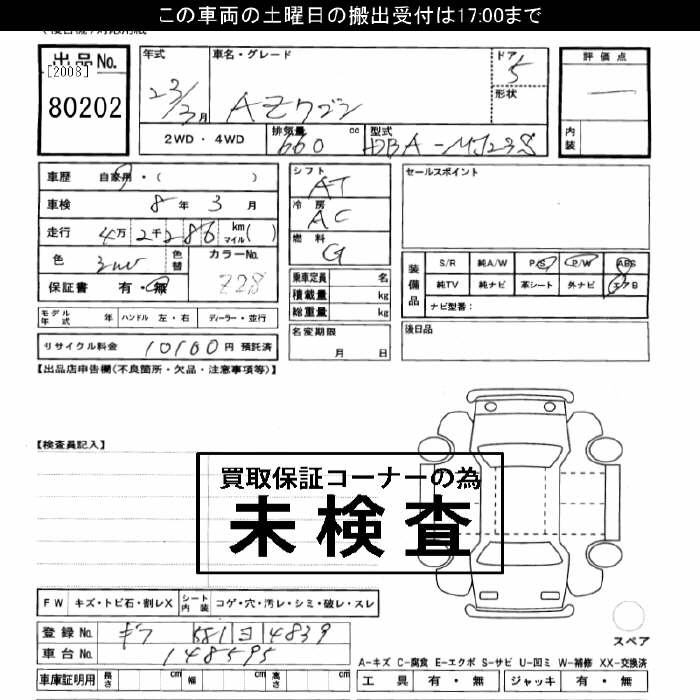 この車両の土曜日の搬出受付は17:00まで
出品No. 年式 車名・グレード ドア 評価点
[2008] 23/3月 AZワゴン 5 形状 —
80202 内装
2WD・4WD 排気量 660 cc 型式 DBA-MJ23S
車歴 自家用・( ) シフト AT セールスポイント
車検 8年 3月 冷房 AC
走行 4万 2千 286 km マイル( ) 燃料 G
色 色替 カラーNo. Z2S 装備品 S/R 純A/W P/S P/W ABS
保証書 有・無 乗車定員 名 純TV 純ナビ 革シート 外ナビ エアB
積載量 kg ナビ型番:
モデル年式 年 ハンドル 左・右 ディーラー・並行 総重量 kg
リサイクル料金 10100円 預託済 名変期限 月 日 後日品
【出品店申告欄(不良箇所・欠品・注意事項等)】
【検査員記入】
買取保証コーナーの為
未検査
FW キズ・トビ石・割レX シート内装 コゲ・穴・汚レ・シミ・破レ・スレ
登録No. ギフ 581 ヨ 4839
車台No. 148595 スペア
A-キズ C-腐食 E-エクボ S-サビ U-凹ミ W-補修 XX-交換済
車庫証明用 長さ cm 幅 cm 高さ cm 工具 有・無 ジャッキ 有・無